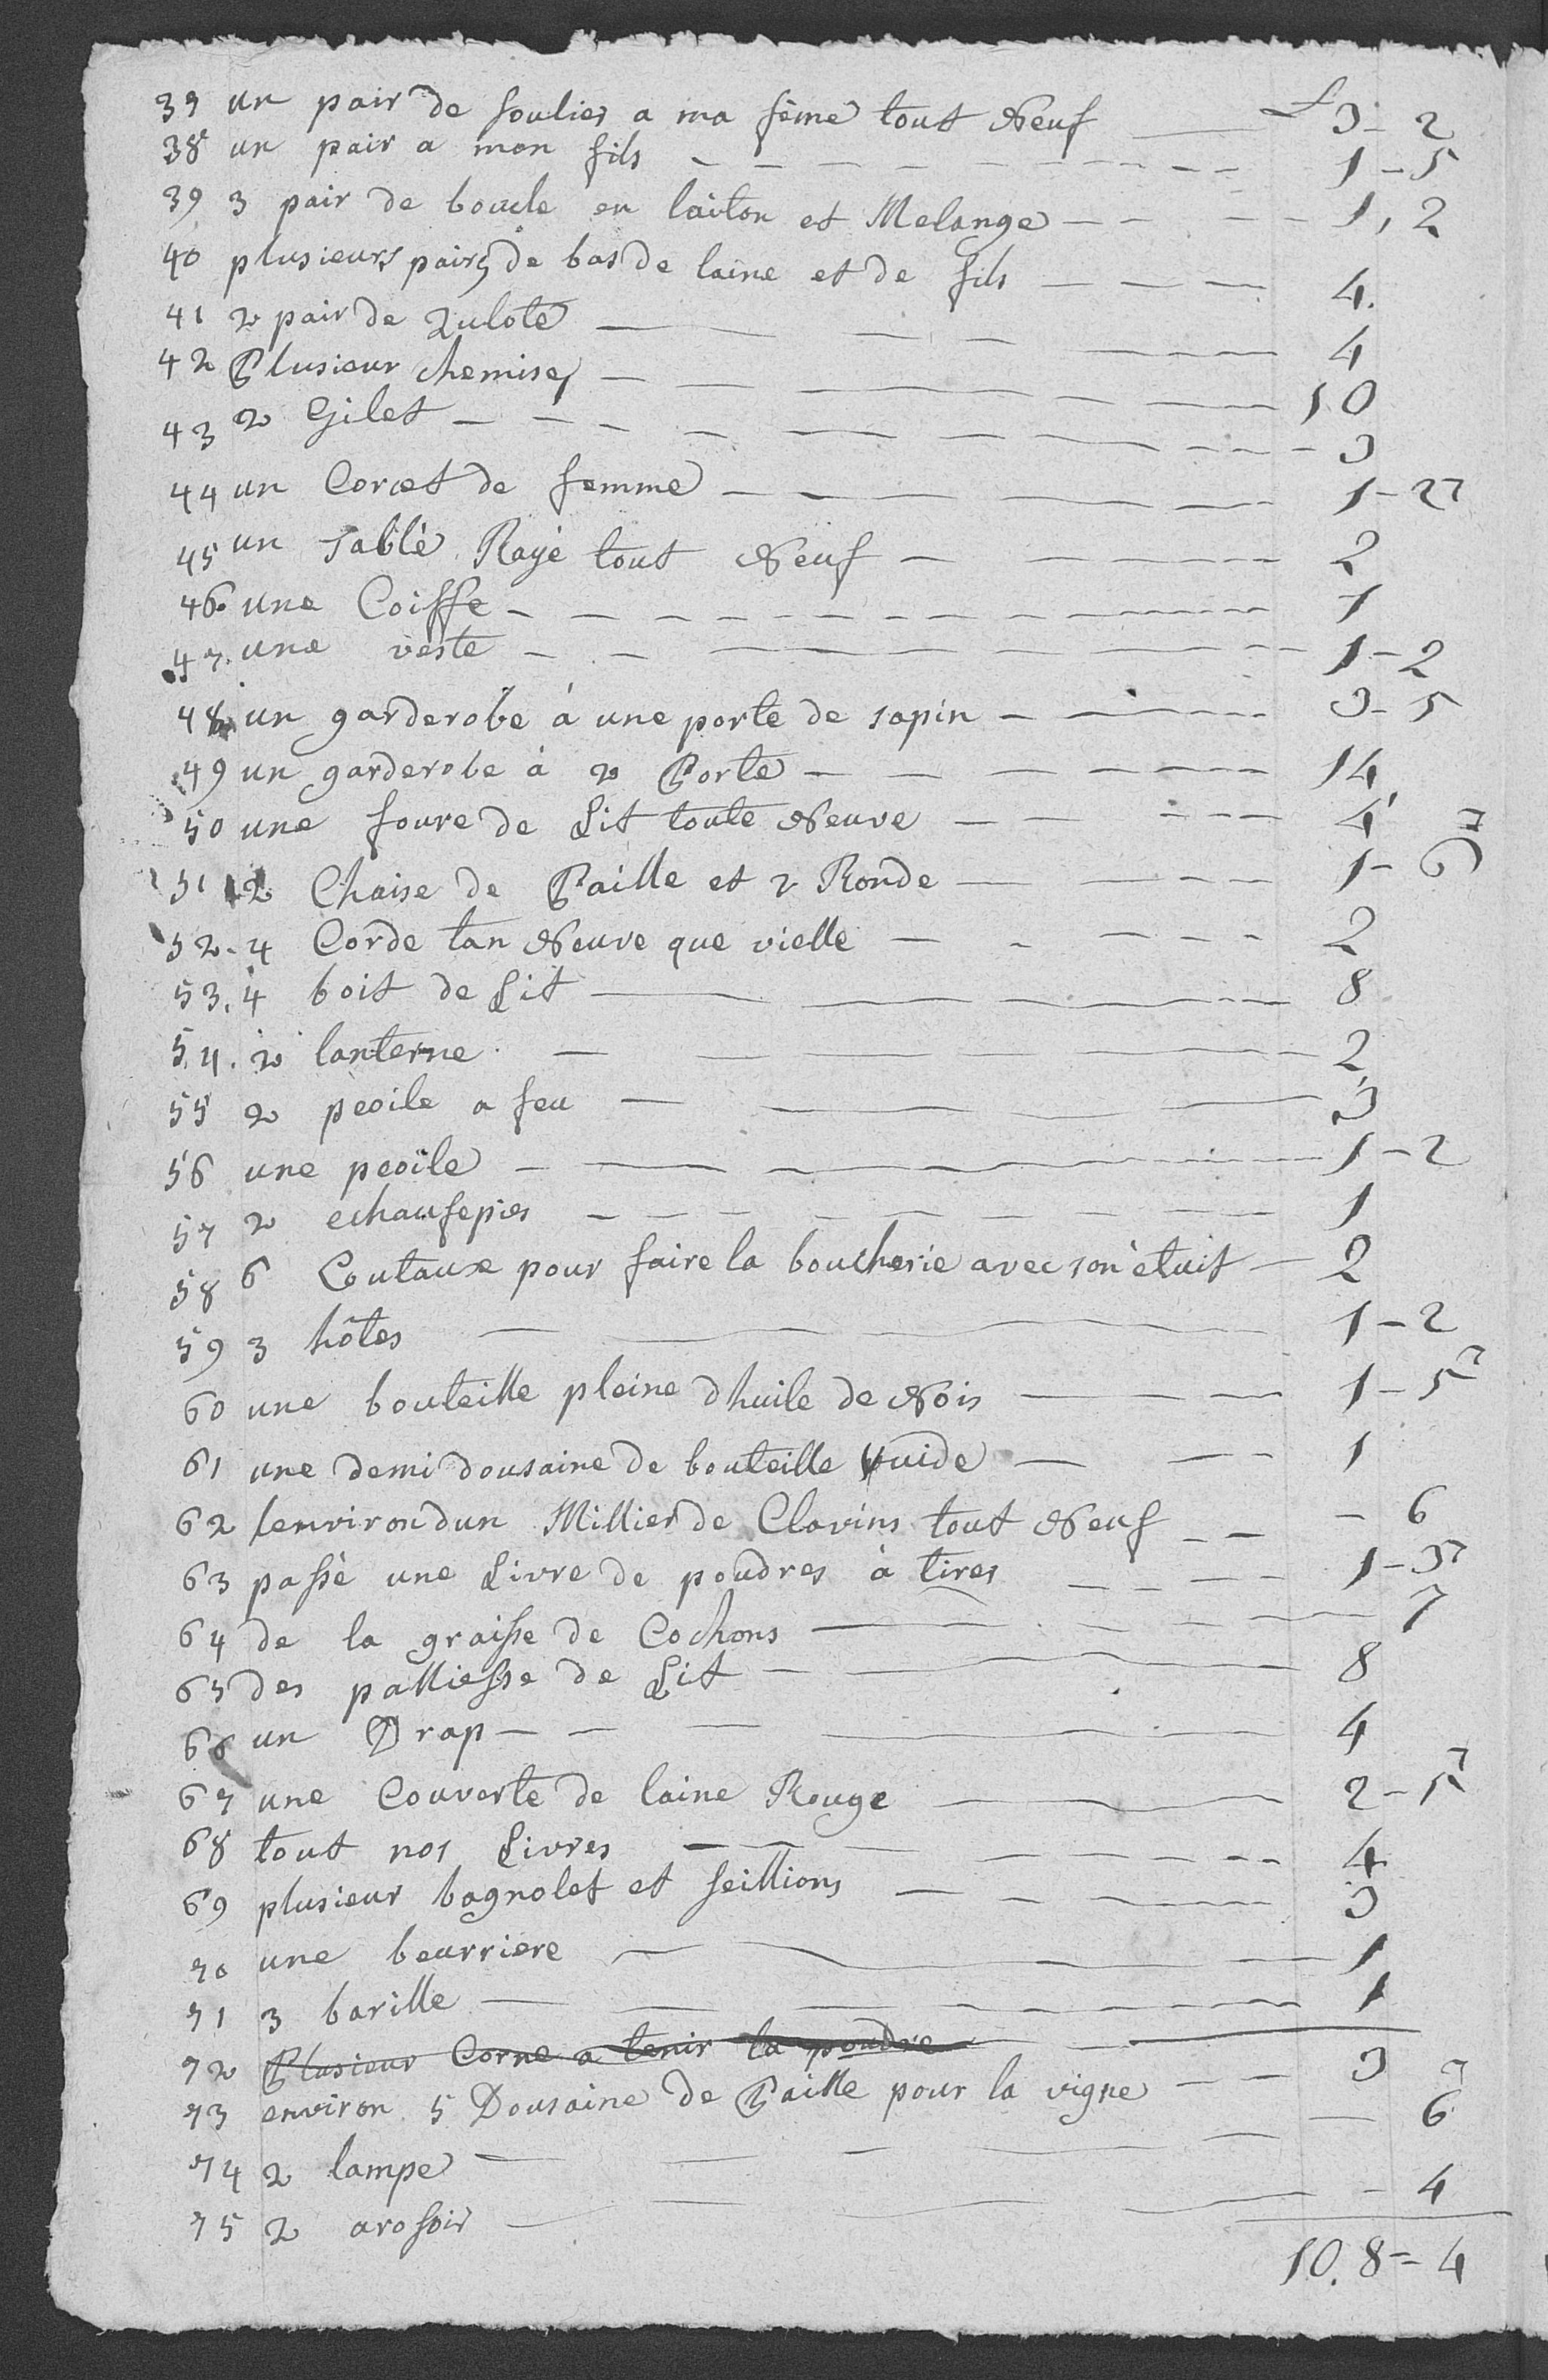 39 un pair de soulier a ma feme tout Neuf — L 3 - 2
38 un pair a mon fils - - - 1 - 5
39 3 pair de boucle en laiton et Melange - - - 1, 2
40 plusieurs pairs de bas de laine et de fils - - - 4.
41 2 pair de Qulote - - - 4
42 Plusieur chemises - - - 10
43 2 Gilet - - - 3
44 un Corcet de femme - - - 1 - 2
45 un tablè Rayè tout Neuf - - - 2
46. une Coiffe - - - 1
47. une veste - - - 1 - 2
48 un garderobe à une porte de sapin - - - 3 - 5
49 un garderobe à 2 Porte - - - 14
50 une foure de Lit toute Neuve - - - 4
51 2 Chaise de Paille et 2 Ronde - - - 1 - 6
52 - 4 Corde tan Neuve que vielle - - - 2
53. 4 boit de Lit - - - 8
54. 2 lanterne - - - 2
55 2 peoile a feu - - - 3
56 une peoile - - - 1 - 2
57 2 echaufepies - - - 1
58 6 Coutaux pour faire la boucherie avec son ètuit - 2
59 3 hôtes - - - 1 - 2
60 une bouteille pleine dhuile de Nois - - - 1 - 5
61 une demi dousaine de bouteille vuide - - - 1
62 environ dun Millier de Clavins tout Neuf - - - 6
63 passè une Livre de poudres à tires - - - 1 - 3
64 de la graisse de Cochons - - - 7
65 des palliesse de Lit - - - 8
66 un Drap - - - 4
67 une Couverte de laine Rouge - - - 2 - 5
68 tout nos Livres - - - 4
69 plusieur bagnolet et seillions - - - 3
70 une beurriere - - - 1
71 3 barille - - - 1
72 Plusieur Corne a tenir la poudre
73 environ 5 Dousaine de Paille pour la vigne - - 3
74 2 lampe - - - 6
75 2 arosoir - - - 4
10.8 = 4